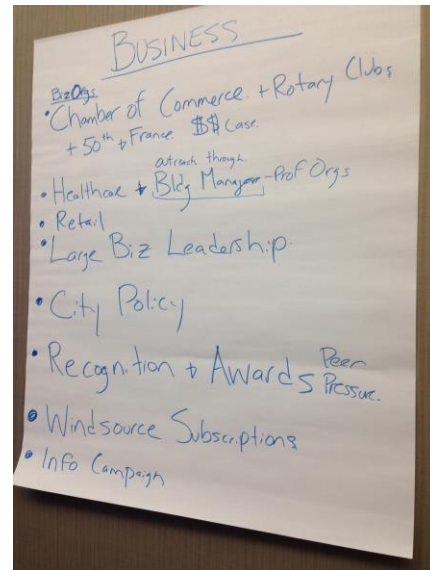 BUSINESS
Biz Orgs
• Chamber of Commerce + Rotary Clubs
+ 50th + France $$ Case.
outreach through
• Healthcare + Bldg Manager - Prof Orgs
• Retail
• Large Biz Leadership
• City Policy
• Recognition + Awards Peer Pressure.
• Windsource Subscriptions
• Info Campaign